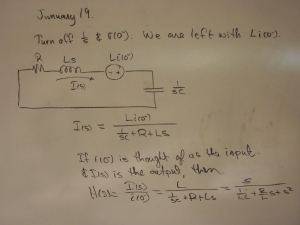 January 19.
Turn off 1/s & v(0-). We are left with Li(0-).
R Ls Li(0-)
- +
I(s) 1/sC
I(s) = Li(0-) / (1/sC + R + Ls)
If i(0-) is thought of as the input
& I(s) is the output, then
H(s) = I(s)/i(0-) = L / (1/sC + R + Ls) = s / (1/LC + R/L s + s²)